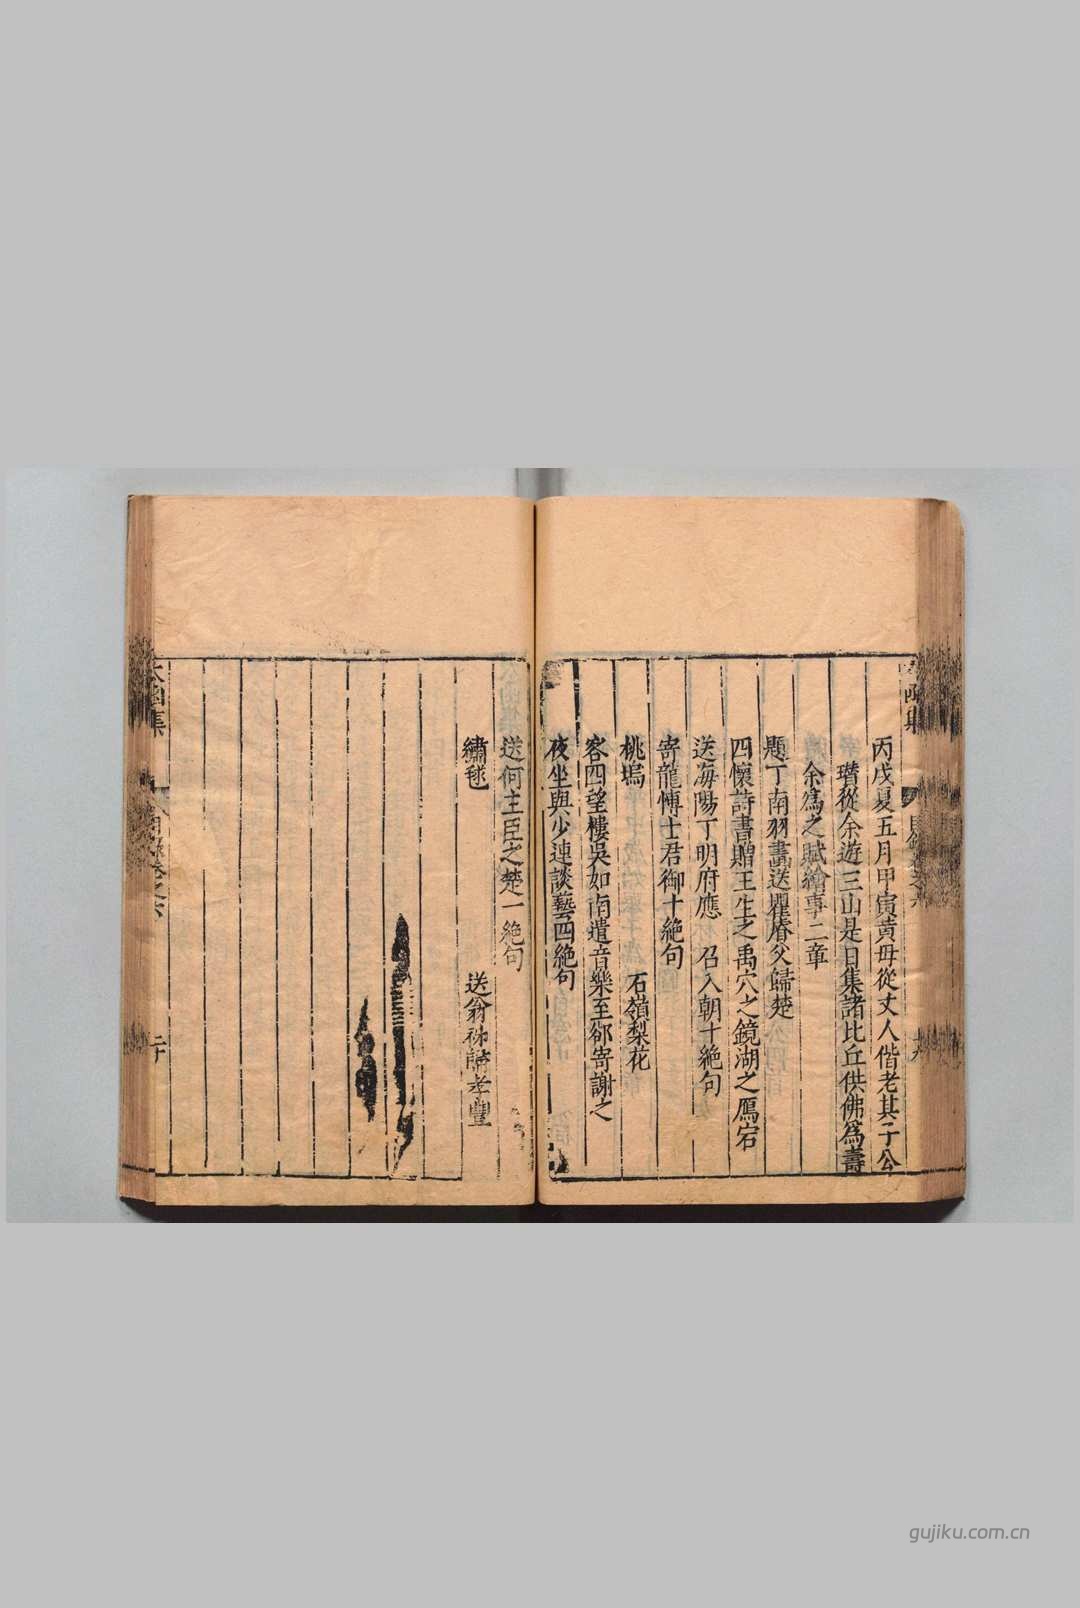 丙戌夏五月甲寅黃母從丈人偕老其子公
瓚從余遊三山是日集諸比丘供佛爲壽
余爲之賦繪事二章
題丁南羽畫送瞿睿父歸楚
四懷詩書贈王生之禹穴之鏡湖之鴈宕
送海陽丁明府應 召入朝十絶句
寄龍博士君御十絶句
桃塢 石嶺梨花
客四望樓吳如南遣音樂至郤寄謝之
夜坐與少連談藝四絶句
送何主臣之楚一絶句
繡毬 送翁
太函集
目錄卷之六
二十
gujiku.com.cn